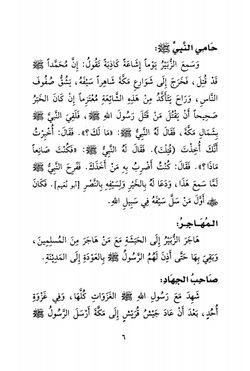 حَامِي النَّبِيِّ ﷺ:
وَسَمِعَ الزُّبَيْرُ يَوْماً إِشَاعَةً كَاذِبَةً تَقُولُ: إِنَّ مُحَمَّداً ﷺ
قَدْ قُتِلَ، فَخَرَجَ إِلَى شَوَارِعِ مَكَّةَ شَاهِراً سَيْفَهُ، يَشُقُّ صُفُوفَ
النَّاسِ، وَرَاحَ يَتَأَكَّدُ مِنْ هَذِهِ الشَّائِعَةِ مُعْتَزِماً إِنْ كَانَ الْخَبَرُ
صَحِيحاً أَنْ يَقْتُلَ مَنْ قَتَلَ رَسُولَ اللهِ ﷺ، فَلَقِيَ النَّبِيَّ ﷺ
بِشَمَالِ مَكَّةَ، فَقَالَ لَهُ النَّبِيُّ ﷺ: «مَا لَكَ؟». فَقَالَ: أُخْبِرْتُ
أَنَّكَ أُخِذْتَ (قُتِلْتَ). فَقَالَ لَهُ النَّبِيُّ ﷺ: «فَكُنْتَ صَانِعاً
مَاذَا؟». فَقَالَ: كُنْتُ أَضْرِبُ بِهِ مَنْ أَخَذَكَ. فَفَرِحَ النَّبِيُّ ﷺ
لَمَّا سَمِعَ هَذَا، وَدَعَا لَهُ بِالْخَيْرِ وَلِسَيْفِهِ بِالنَّصْرِ [أبو نُعيم]. فَكَانَ
أَوَّلَ مَنْ سَلَّ سَيْفَهُ فِي سَبِيلِ اللهِ.
المُهَاجِرُ:
هَاجَرَ الزُّبَيْرُ إِلَى الْحَبَشَةِ مَعَ مَنْ هَاجَرَ مِنَ الْمُسْلِمِينَ،
وَبَقِيَ بِهَا حَتَّى أَذِنَ لَهُمُ الرَّسُولُ ﷺ بِالْعَوْدَةِ إِلَى الْمَدِينَةِ.
صَاحِبُ الجِهَادِ:
شَهِدَ مَعَ رَسُولِ اللهِ ﷺ الْغَزَوَاتِ كُلَّهَا، وَفِي غَزْوَةِ
أُحُدٍ، بَعْدَ أَنْ عَادَ جَيْشُ قُرَيْشٍ إِلَى مَكَّةَ أَرْسَلَ الرَّسُولُ ﷺ
٦